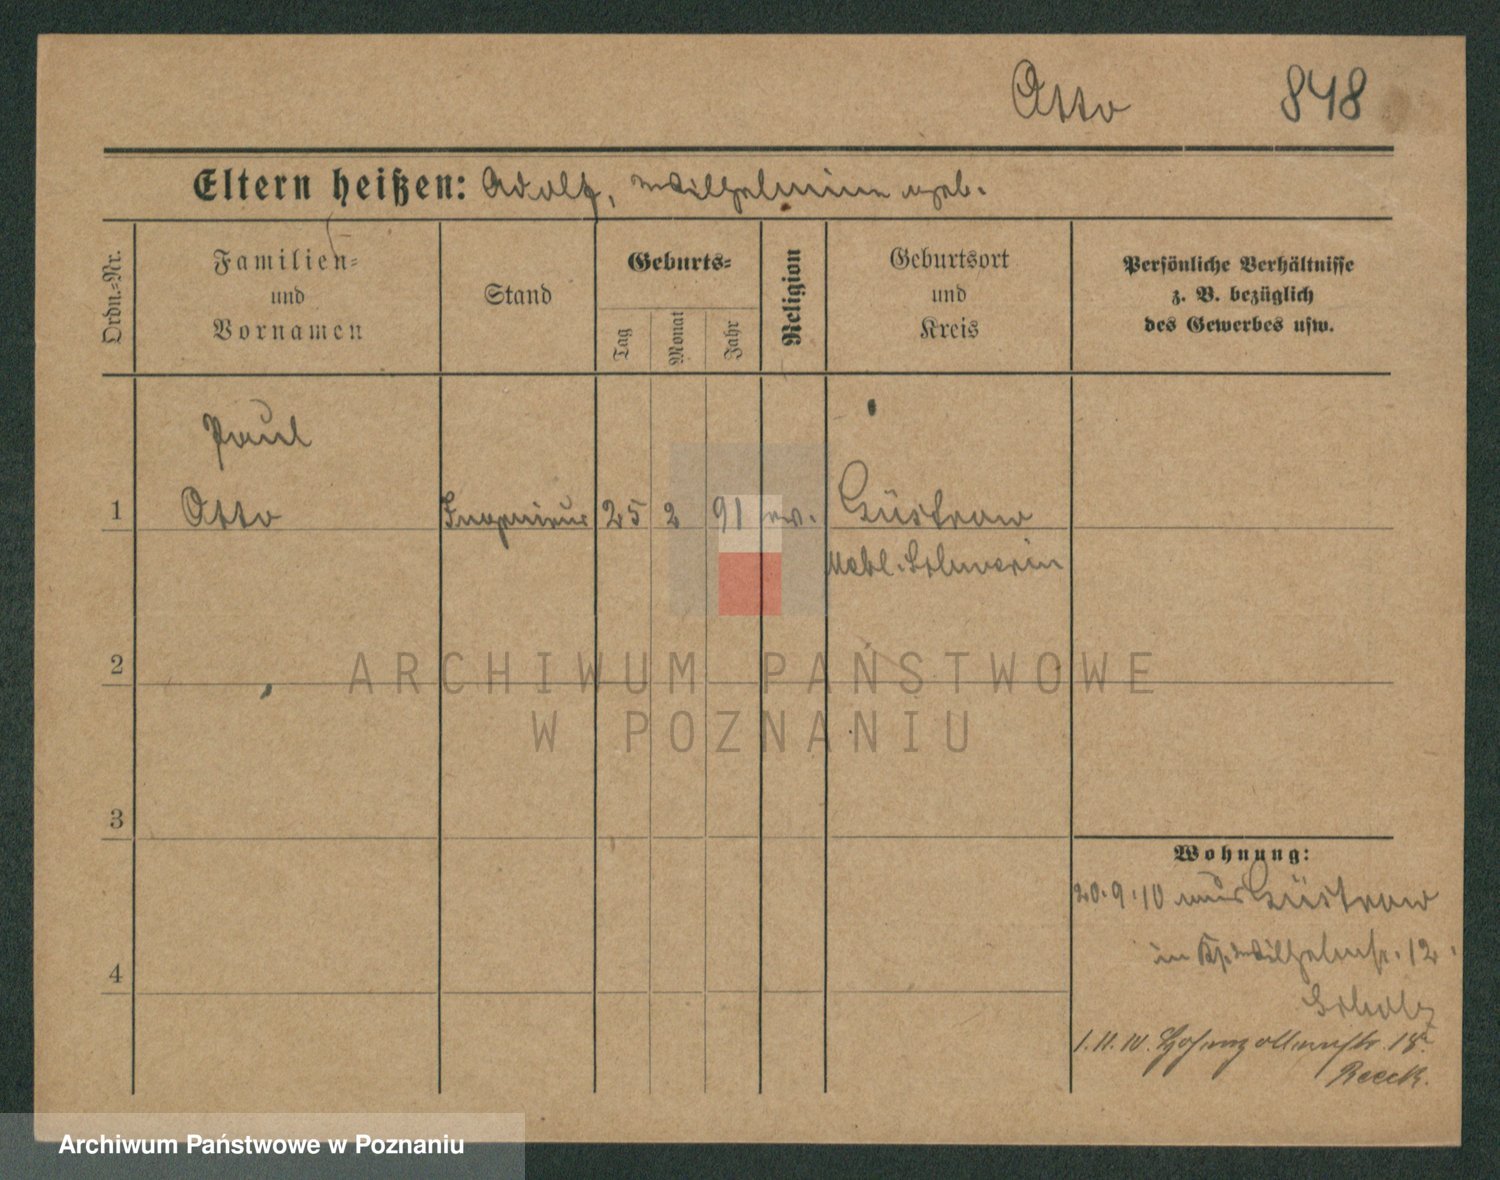 Otto 848
Eltern heißen: Adolf, Wilhelmine geb.
Ordn.=Nr.
Familien=
und
Vornamen
Stand
Geburts=
Tag
Monat
Jahr
Religion
Geburtsort
und
Kreis
Persönliche Verhältnisse
z. B. bezüglich
des Gewerbes usw.
Paul
1 Otto Ingenieur 25 2 91 ev. Güstrow
Mekl. Schwerin
2
3
4
Wohnung:
20.9.10 aus Güstrow
in Kp. Wilhelmstr. 12
Scholz
1.11.10. Hohenzollernstr. 18
Reeck.
ARCHIWUM PAŃSTWOWE
W POZNANIU
Archiwum Państwowe w Poznaniu